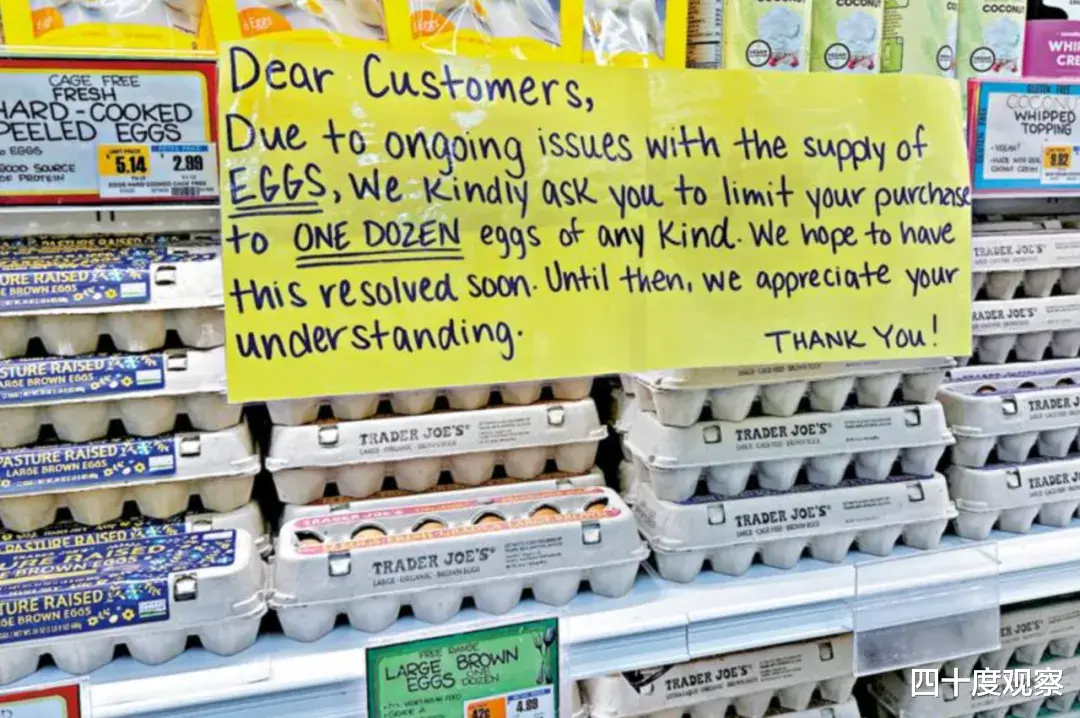 Dear Customers,
Due to ongoing issues with the supply of
EGGS, we kindly ask you to limit your purchase
to ONE DOZEN eggs of any kind. We hope to have
this resolved soon. Until then, we appreciate your
understanding.
THANK YOU!
CAGE FREE
FRESH
HARD-COOKED
PEELED EGGS
EGGS
GOOD SOURCE
OF PROTEIN
5.14
2.99
EGGS HARD COOKED CAGE FREE
6 Eggs
COCONUT
COCONUT
VEGAN
GLUTEN FREE
COCONUT
WHIPPED
TOPPING
VEGAN!
TRADER JOE'S
TRADER JOE'S
PASTURE RAISED
LARGE BROWN EGGS
PASTURE RAISED
LARGE BROWN EGGS
PASTURE RAISED
LARGE BROWN EGGS
PASTURE RAISED
TRADER JOE'S
LARGE · ORGANIC · BROWN EGGS
TRADER JOE'S
LARGE · CAGE FREE · BROWN EGGS
TRADER JOE'S
TRADER JOE'S
LARGE · ORGANIC · BROWN EGGS
TRADER JOE'S
LARGE · CAGE FREE · BROWN EGGS
TRADER JOE'S
FREE RANGE
LARGE BROWN
EGGS ONE DOZEN
GRADE A
42¢
4.99
TRADER JOE'S
JOE'S
四十度观察